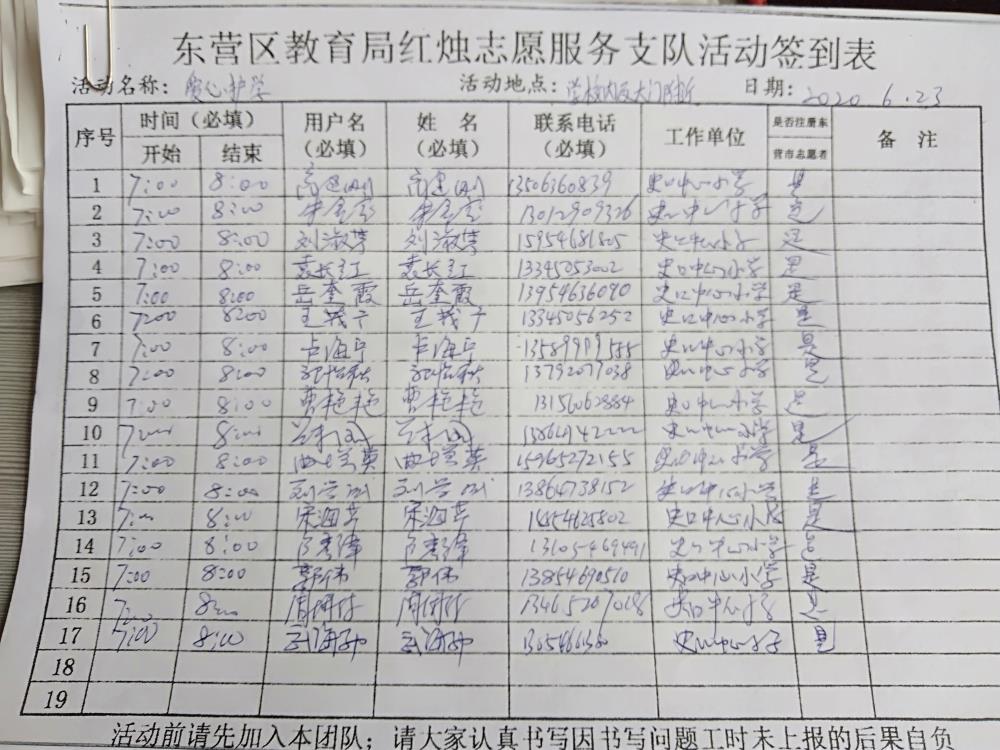 东营区教育局红烛志愿服务支队活动签到表
活动名称: 爱心护学 活动地点: 学校内及大门 日期: 2020 6.23
序号 时间（必填） 用户名（必填） 姓名（必填） 联系电话（必填） 工作单位 是否注册东营市志愿者 备注
开始 结束
1 7:00 8:00 13506360839 史口中心小学 是
2 7:00 8:00 13012909326 史口中心小学 是
3 7:00 8:00 刘淑英 刘淑英 15954681805 史口中心小学 是
4 7:00 8:00 袁长红 袁长红 13345053002 史口中心小学 是
5 7:00 8:00 岳奎霞 岳奎霞 13954636090 史口中心小学 是
6 7:00 8:00 13345056252 史口中心小学 是
7 7:00 8:00 卢海宁 卢海宁 史口中心小学 是
8 7:00 8:00 13792077038 史口中心小学 是
9 7:00 8:00 曹艳艳 曹艳艳 13156062884 史口中心小学 是
10 7:00 8:00 史口中心小学 是
11 7:00 8:00 曲兰英 曲兰英 15965272155 史口中心小学 是
12 7:00 8:00 13864738152 史口中心小学 是
13 7:00 8:00 史口中心小学 是
14 7:00 8:00 13105469491 史口中心小学 是
15 7:00 8:00 郭伟 郭伟 13854690510 史口中心小学 是
16 7:00 8:00 13465207018 史口中心小学 是
17 7:00 8:00 史口中心小学 是
18
19
活动前请先加入本团队；请大家认真书写因书写问题工时未上报的后果自负